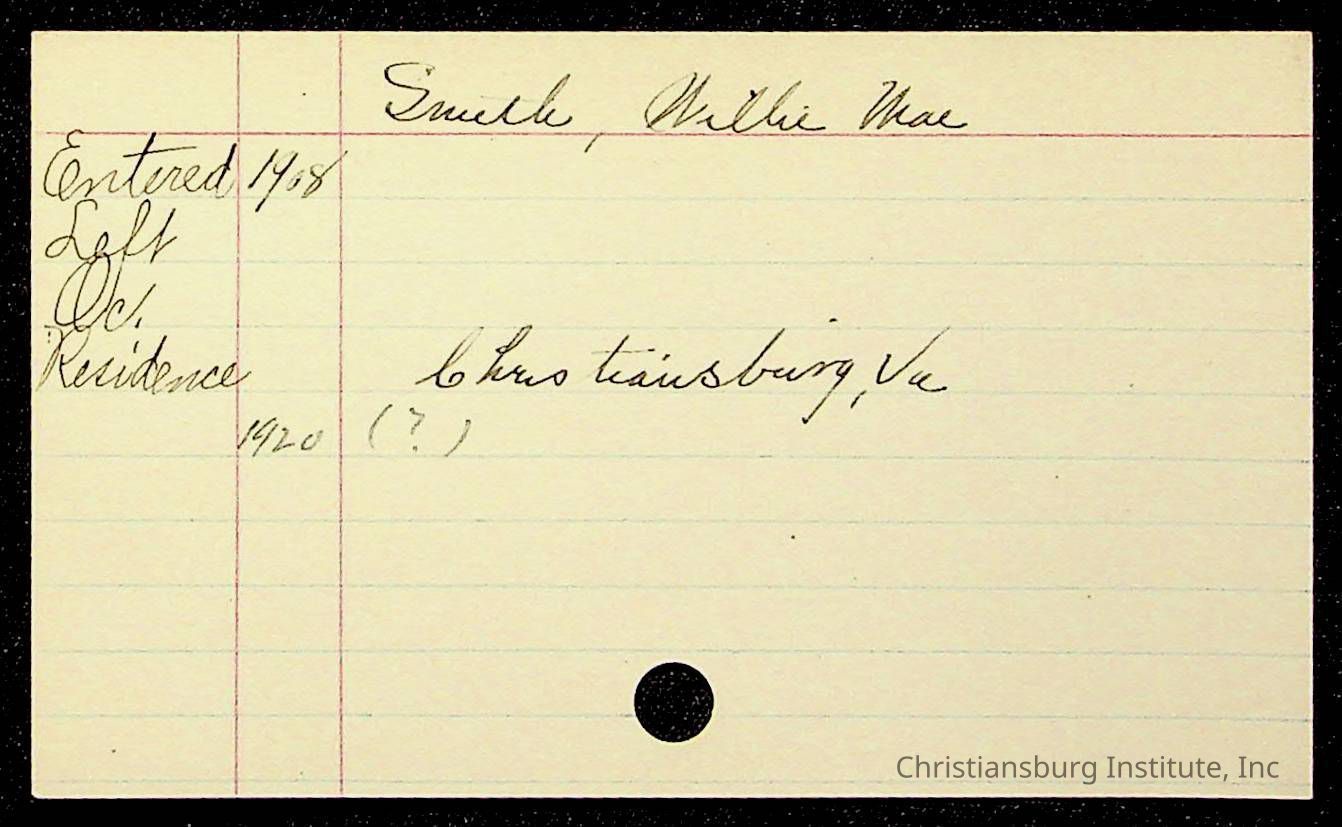 Smith, Willie Mae
Entered 1908
Left
Oc.
Residence Christiansburg, Va
1920 (?)
Christiansburg Institute, Inc